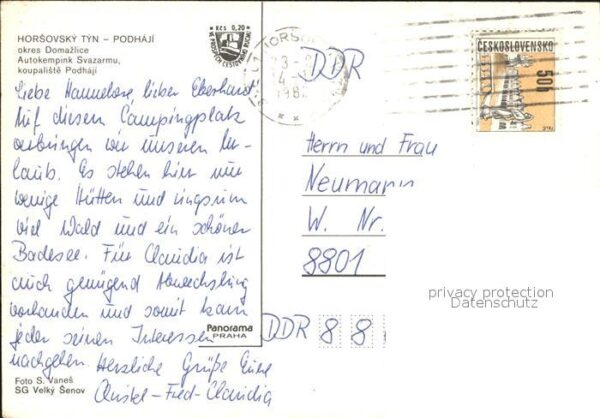 HORŠOVSKÝ TÝN – PODHÁJÍ
okres Domažlice
Autokempink Svazarmu,
koupaliště Podhájí
Kčs 0,20
Liebe Hannelore lieber Eberhard
Auf diesen Campingplatz
verbringen wir unseren Ur-
laub. Es stehen hier nur
wenige Hütten und ringsum
viel Wald und ein schöner
Badesee. Für Claudia ist
auch genügend Abwechslung
vorhanden und somit kann
jeder seinen Interessen
nachgehen. Herzliche Grüße Eure
Christel-Fred-Claudia
Foto S. Vaneš
SG Velký Šenov
Panorama
PRAHA
DDR
ČESKOSLOVENSKO
50h
Herrn und Frau
Neumann
W. Nr.
8801
privacy protection
Datenschutz
DDR 8 8